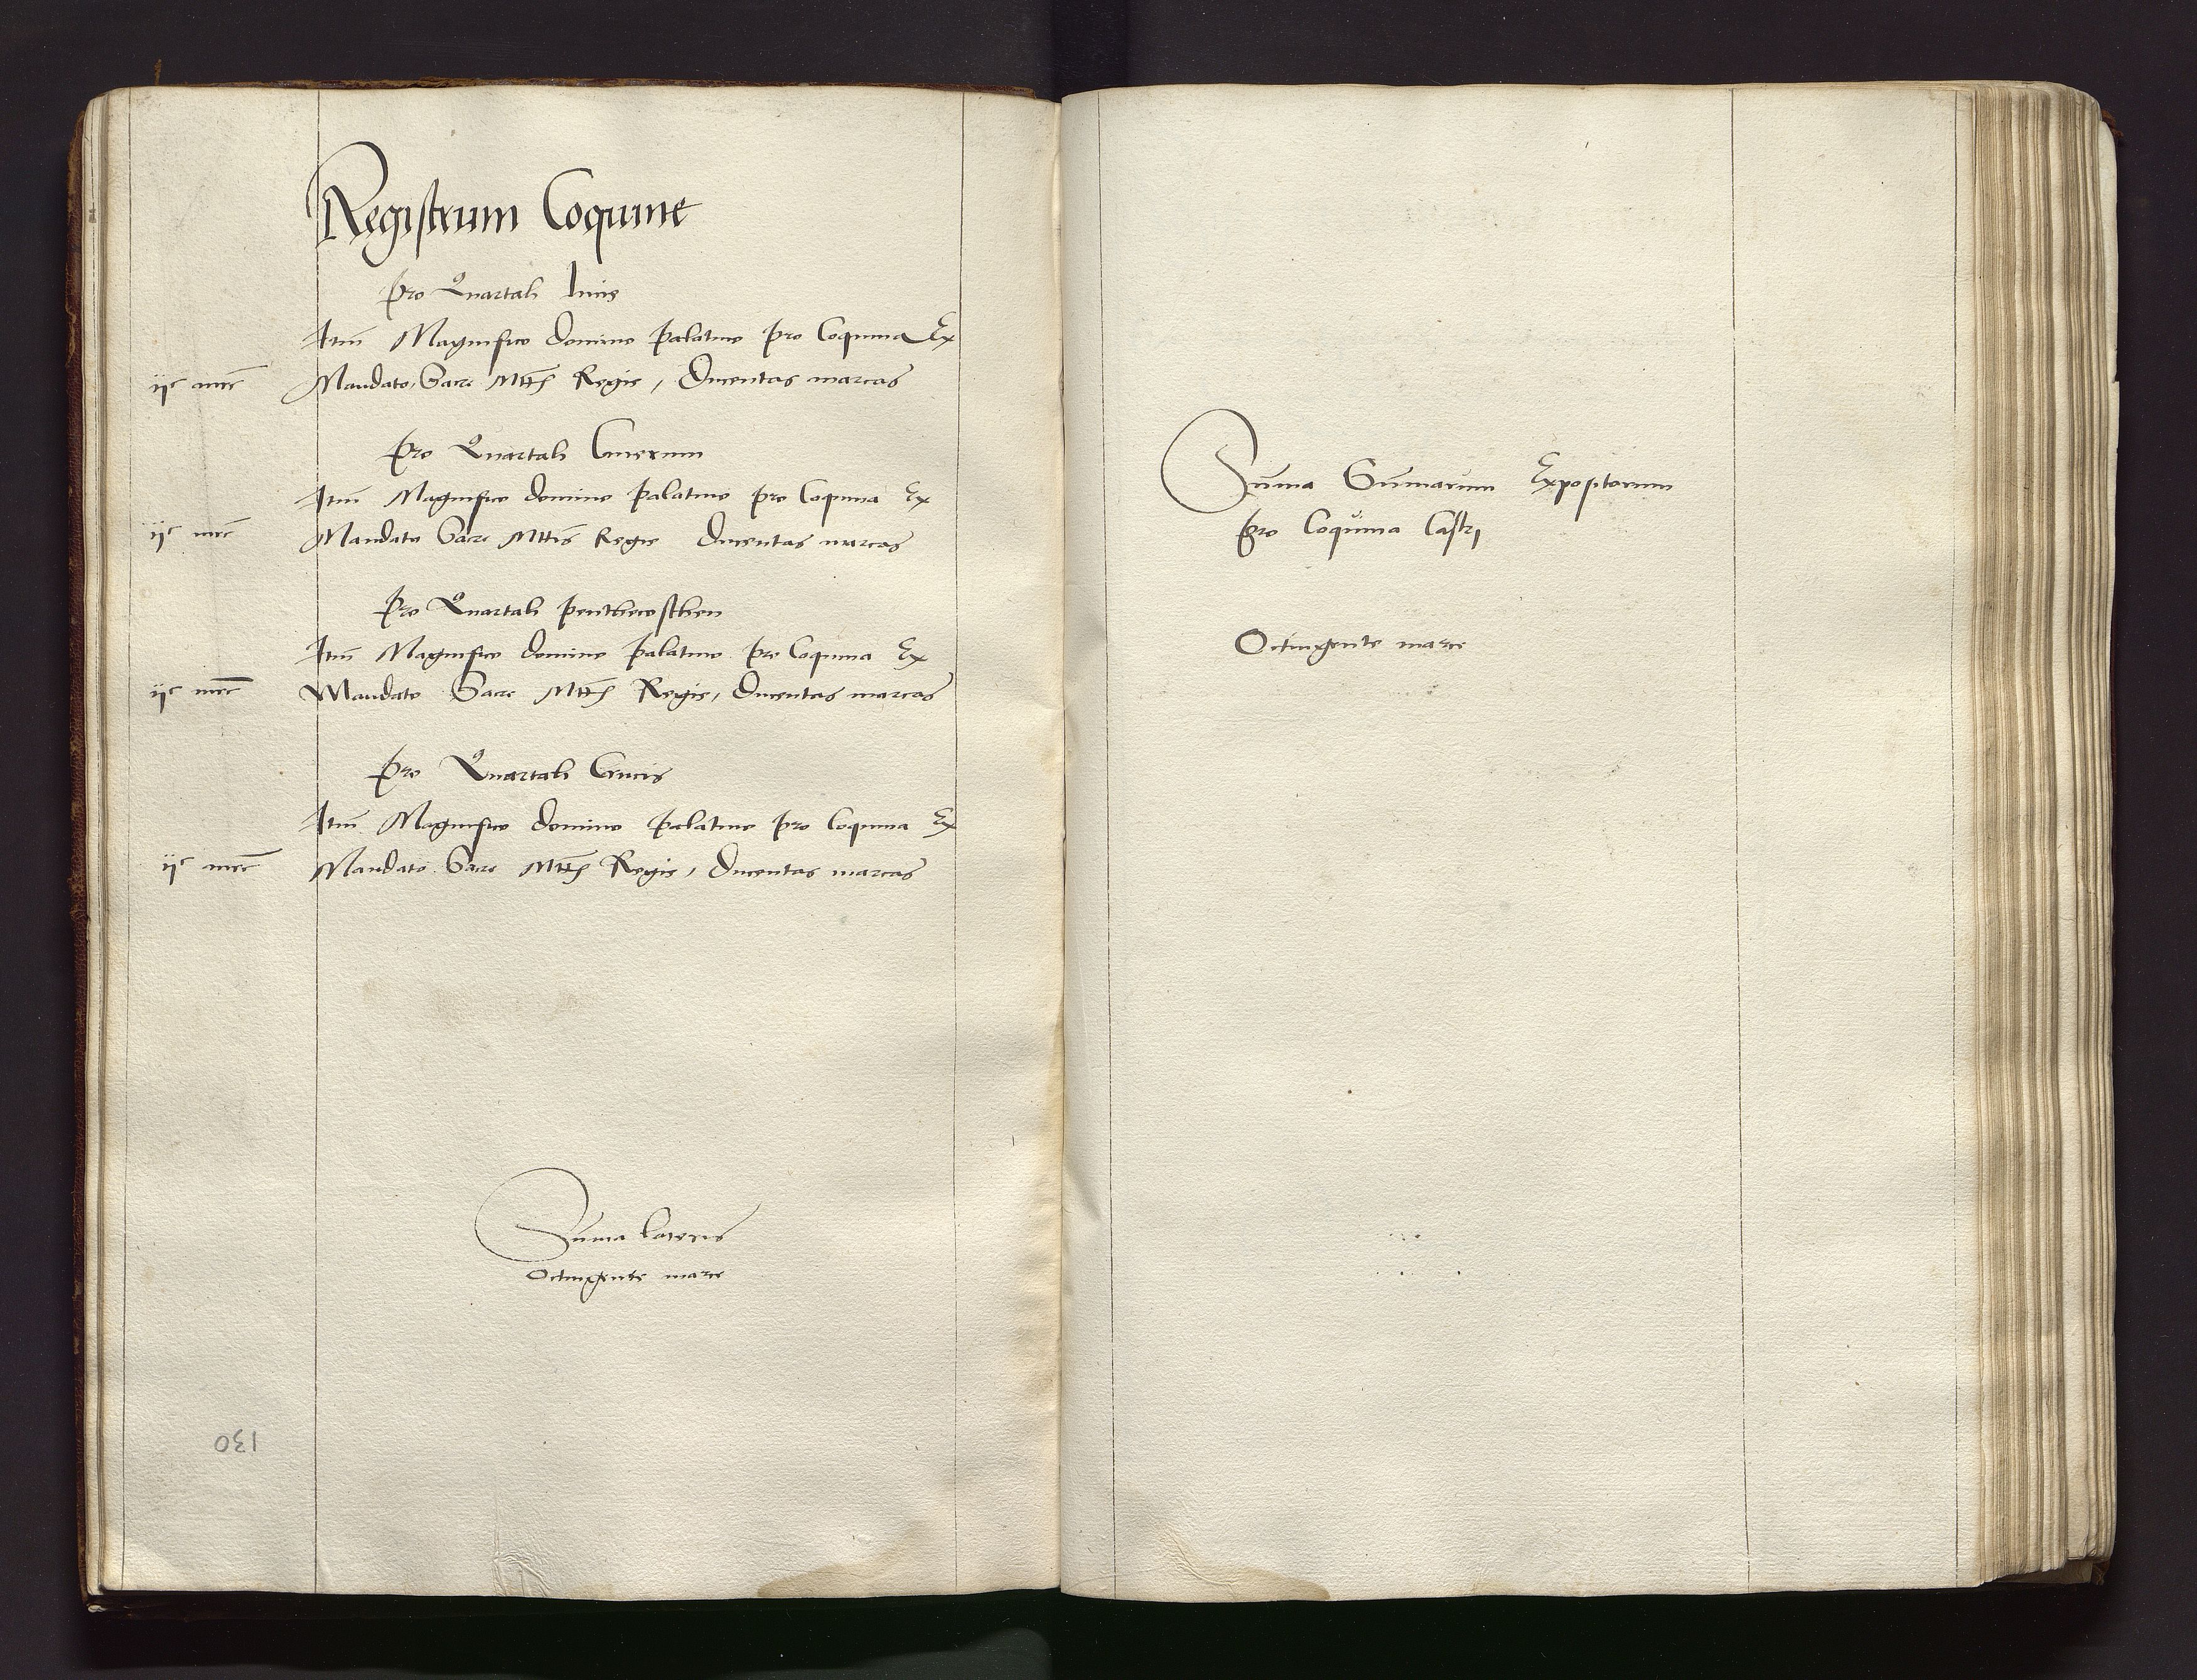 Registrum Coquine
Pro Quartali lucis
Itm̄ Magnifico domino palatino pro Coquina Ex
ijᶜ mrc̄ Mandato Sacre Mttꝭ Regie, Ducentas marcas
Pro Quartali Cinerum
Itm̄ Magnifico domino palatino pro Coquina Ex
ijᶜ mrc̄ Mandato Sacre Mttis Regie Ducentas marcas
Pro Quartali penthecosthen
Itm̄ Magnifico domino palatino pro Coquina Ex
ijᶜ mrc̄ Mandato Sacre Mttꝭ Regie, Ducentas marcas
Pro Quartali Crucis
Itm̄ Magnifico domino palatino pro Coquina Ex
ijᶜ mrc̄ Mandato Sacre Mttꝭ Regie, Ducentas marcas
Sum̄a lateris
Octingente marce
130
Sum̄a Sum̄arum Expositorum
pro Coquina Castri
Octingente marce